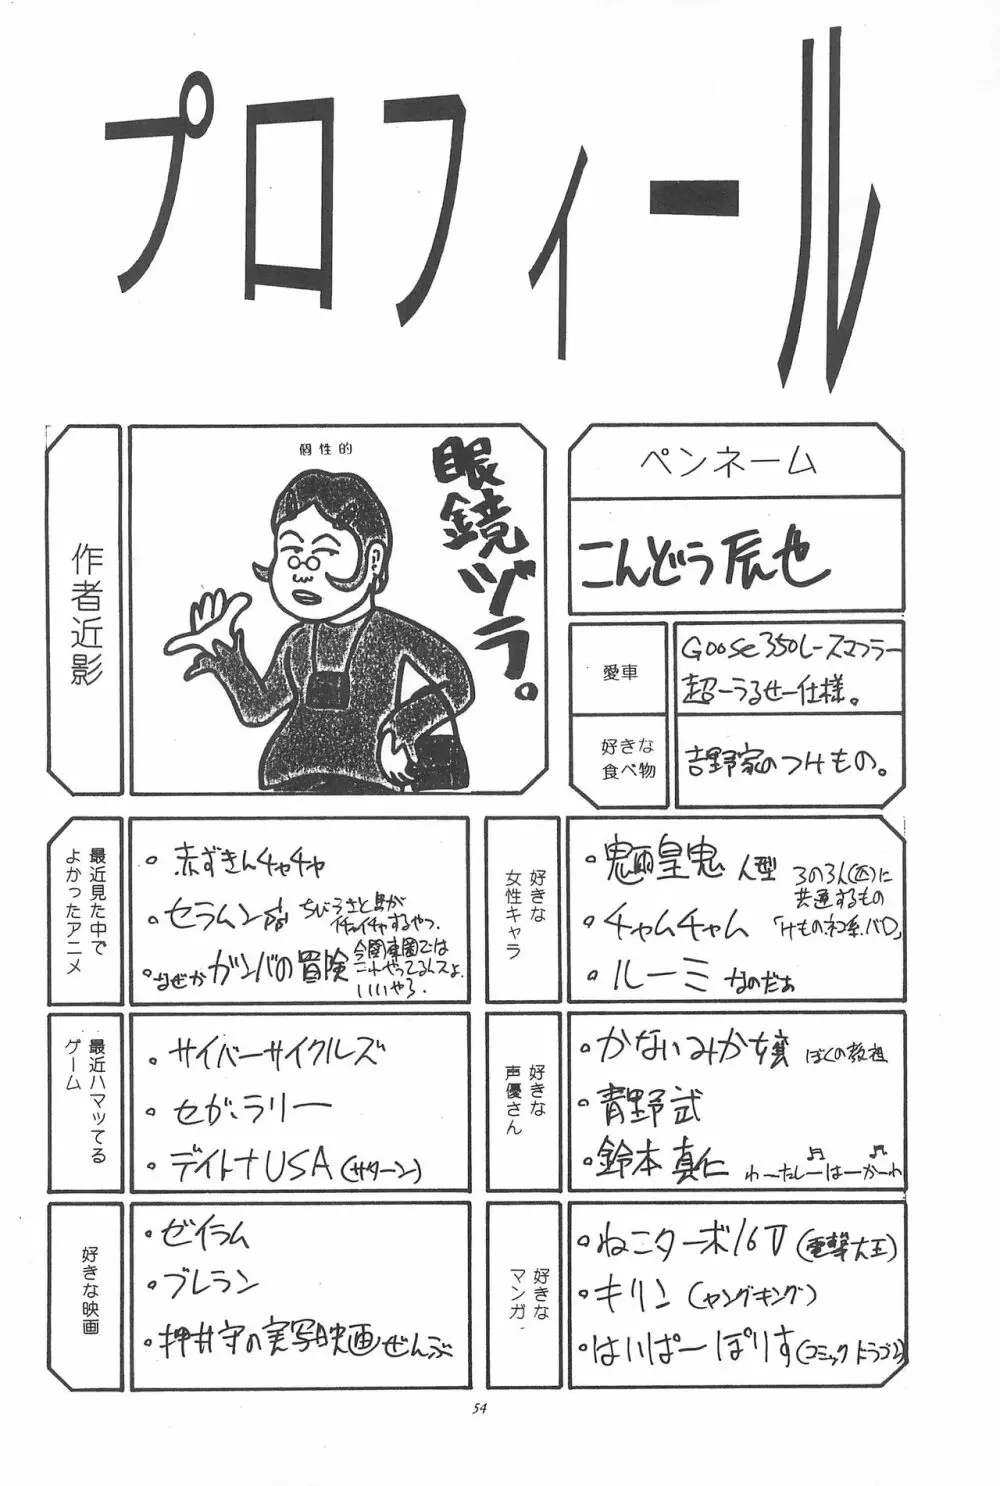 プロフィール
作者近影
個性的
眼鏡ヅラ。
ペンネーム
こんどう辰也
愛車
Goose350レースマフラー
超ーうるせー仕様。
好きな
食べ物
吉野家のつけもの。
最近見た中で
よかったアニメ
・赤ずきんチャチャ
・セラムン
ちびうさと馬が
イチャイチャするやつ。
・なぜかガンバの冒険
今関東圏では
これやってるんスよ。
いいやろ。
好きな
女性キャラ
・魍皇鬼 人型
・チャムチャム
・ルーミィなのだぁ
3の3人(匹)に
共通するもの
「けものネコ系、バロ」
最近ハマッてる
ゲーム
・サイバーサイクルズ
・セガ・ラリー
・デイトナUSA(サターン)
好きな
声優さん
・かないみか嬢 ぼくの教祖
・青野武
・鈴木真仁 わーたしーはーかーわ
好きな映画
・ゼイラム
・ブレラン
・押井守の実写映画ぜんぶ
好きな
マンガ
・ねこターボ16V(電撃大王)
・キリン(ヤングキング)
・はいぱーぽりす(コミックドラゴン)
54